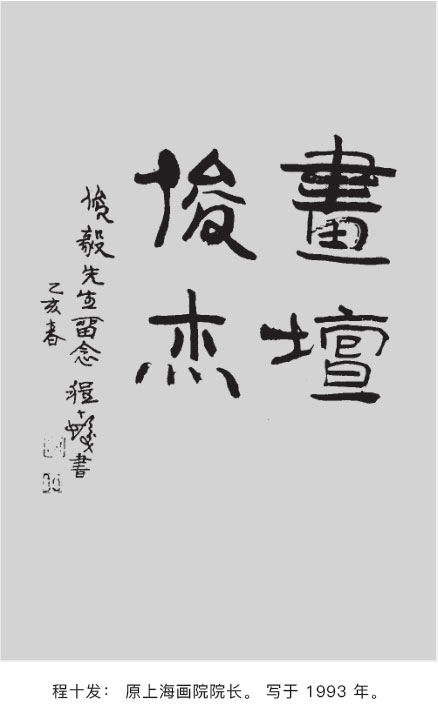 畫壇
俊杰
俊毅先生留念 程十髮書
乙亥春
程十发： 原上海画院院长。 写于 1993 年。